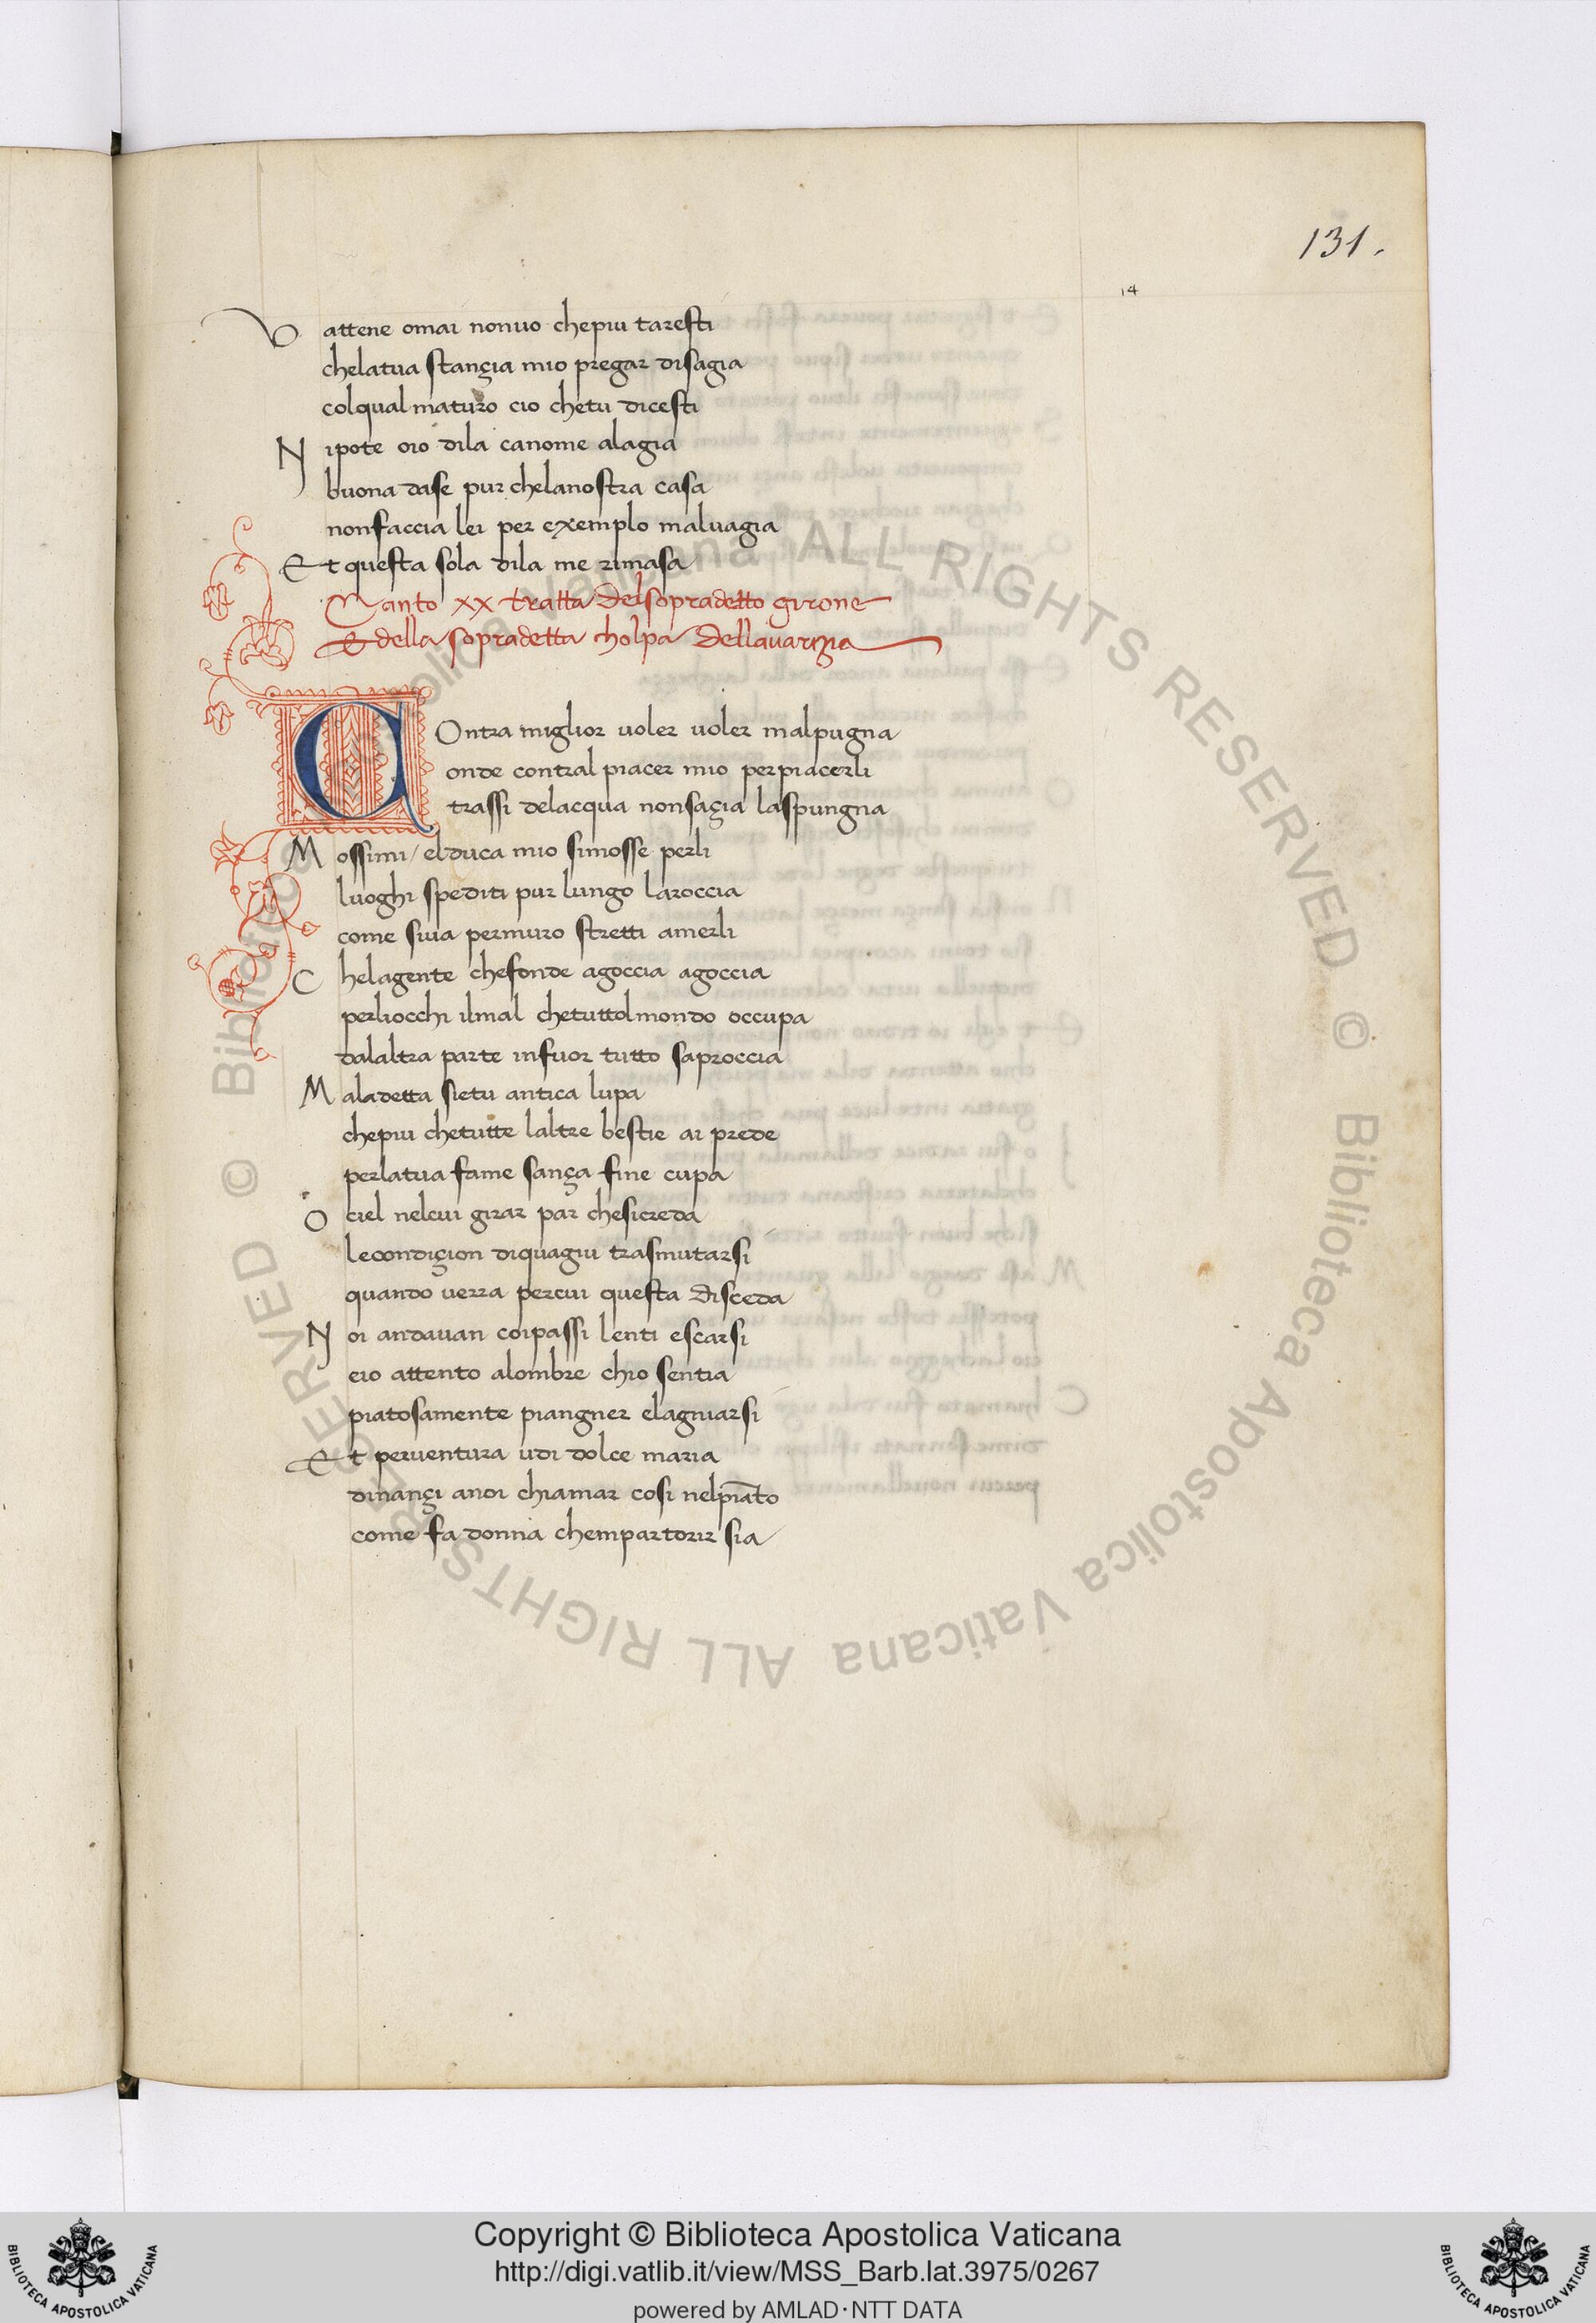 131.
14
Vattene omai nonuo chepiu taresti
chelatua stançia mio pregar disagia
colqual maturo cio chetu dicesti
Nipote oio dila canome alagia
buona dase pur chelanostra casa
nonfaccia lei per exemplo maluagia
Et questa sola dila me rimasa
Canto xx tratta delsopradetto girone
& della sopradetta cholpa dellauarizia
COntra miglior uoler uoler malpugna
onde contral piacer mio perpiacerli
trassi delacqua nonsaçia laspungna
Mossimi / elduca mio simosse perli
luoghi spediti pur lungo laroccia
come siua permuro stretti amerli
Chelagente chefonde agoccia agoccia
perliocchi ilmal chetuttolmondo occupa
dalaltra parte infuor tutto saproccia
Maladetta sietu antica lupa
chepiu chetutte laltre bestie ai prede
perlatua fame sança fine cupa
O ciel nelcui girar par chesicreda
lecondiçion diquagiu trasmutarsi
quando uerra percui questa disceda
Noi andauan coipassi lenti escarsi
eio attento alombre chio sentia
piatosamente piangner elagniarsi
Et peruentura udi dolce maria
dinançi anoi chiamar cosi nelpiãto
come fa donna chempartorir sia
Copyright © Biblioteca Apostolica Vaticana
http://digi.vatlib.it/view/MSS_Barb.lat.3975/0267
powered by AMLAD·NTT DATA
BIBLIOTECA APOSTOLICA VATICANA
BIBLIOTECA APOSTOLICA VATICANA
© Biblioteca Apostolica Vaticana ALL RIGHTS RESERVED © Biblioteca Apostolica Vaticana ALL RIGHTS RESERVED